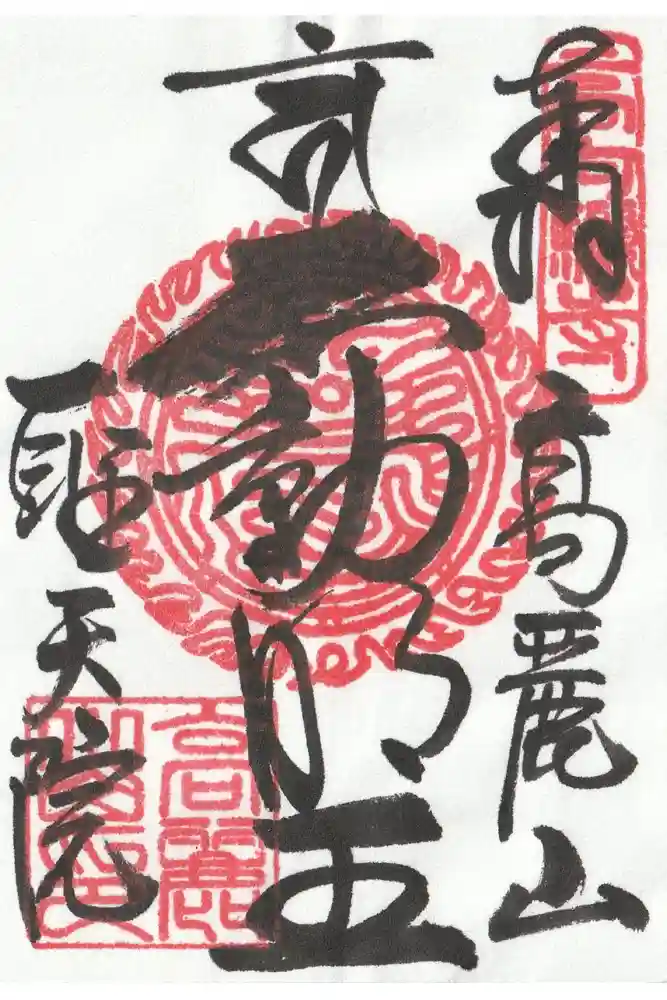 奉拝
高麗山
不動明王
聖天院
高麗